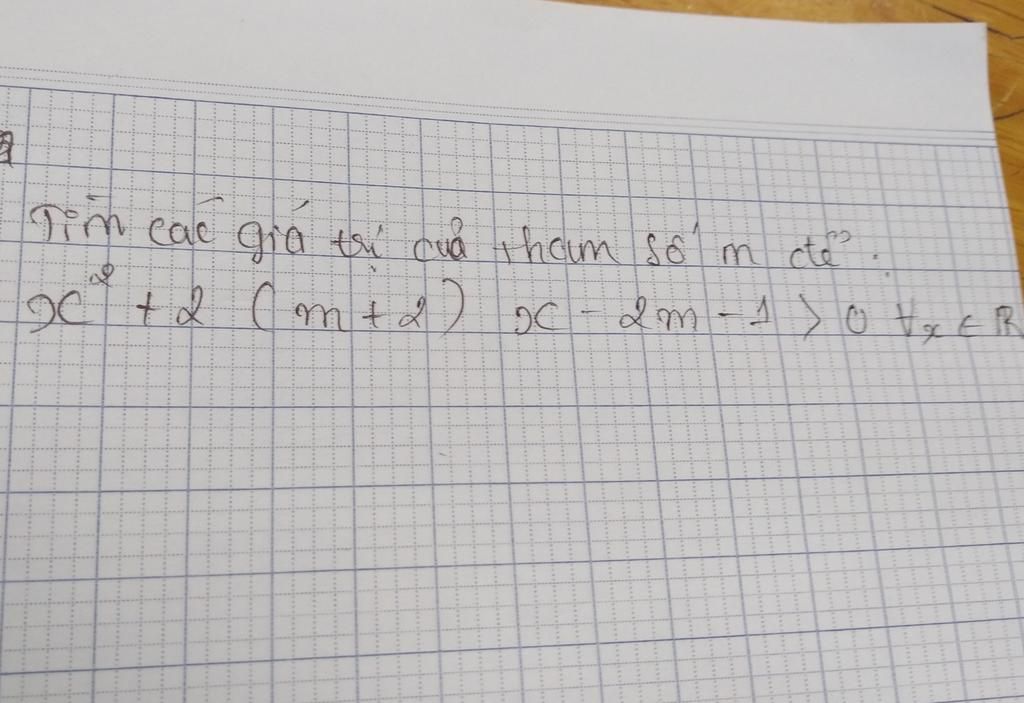 Tìm các giá trị của tham số m để :
x² + 2 (m + 2) x - 2m - 1 > 0 ∀x ∈ R